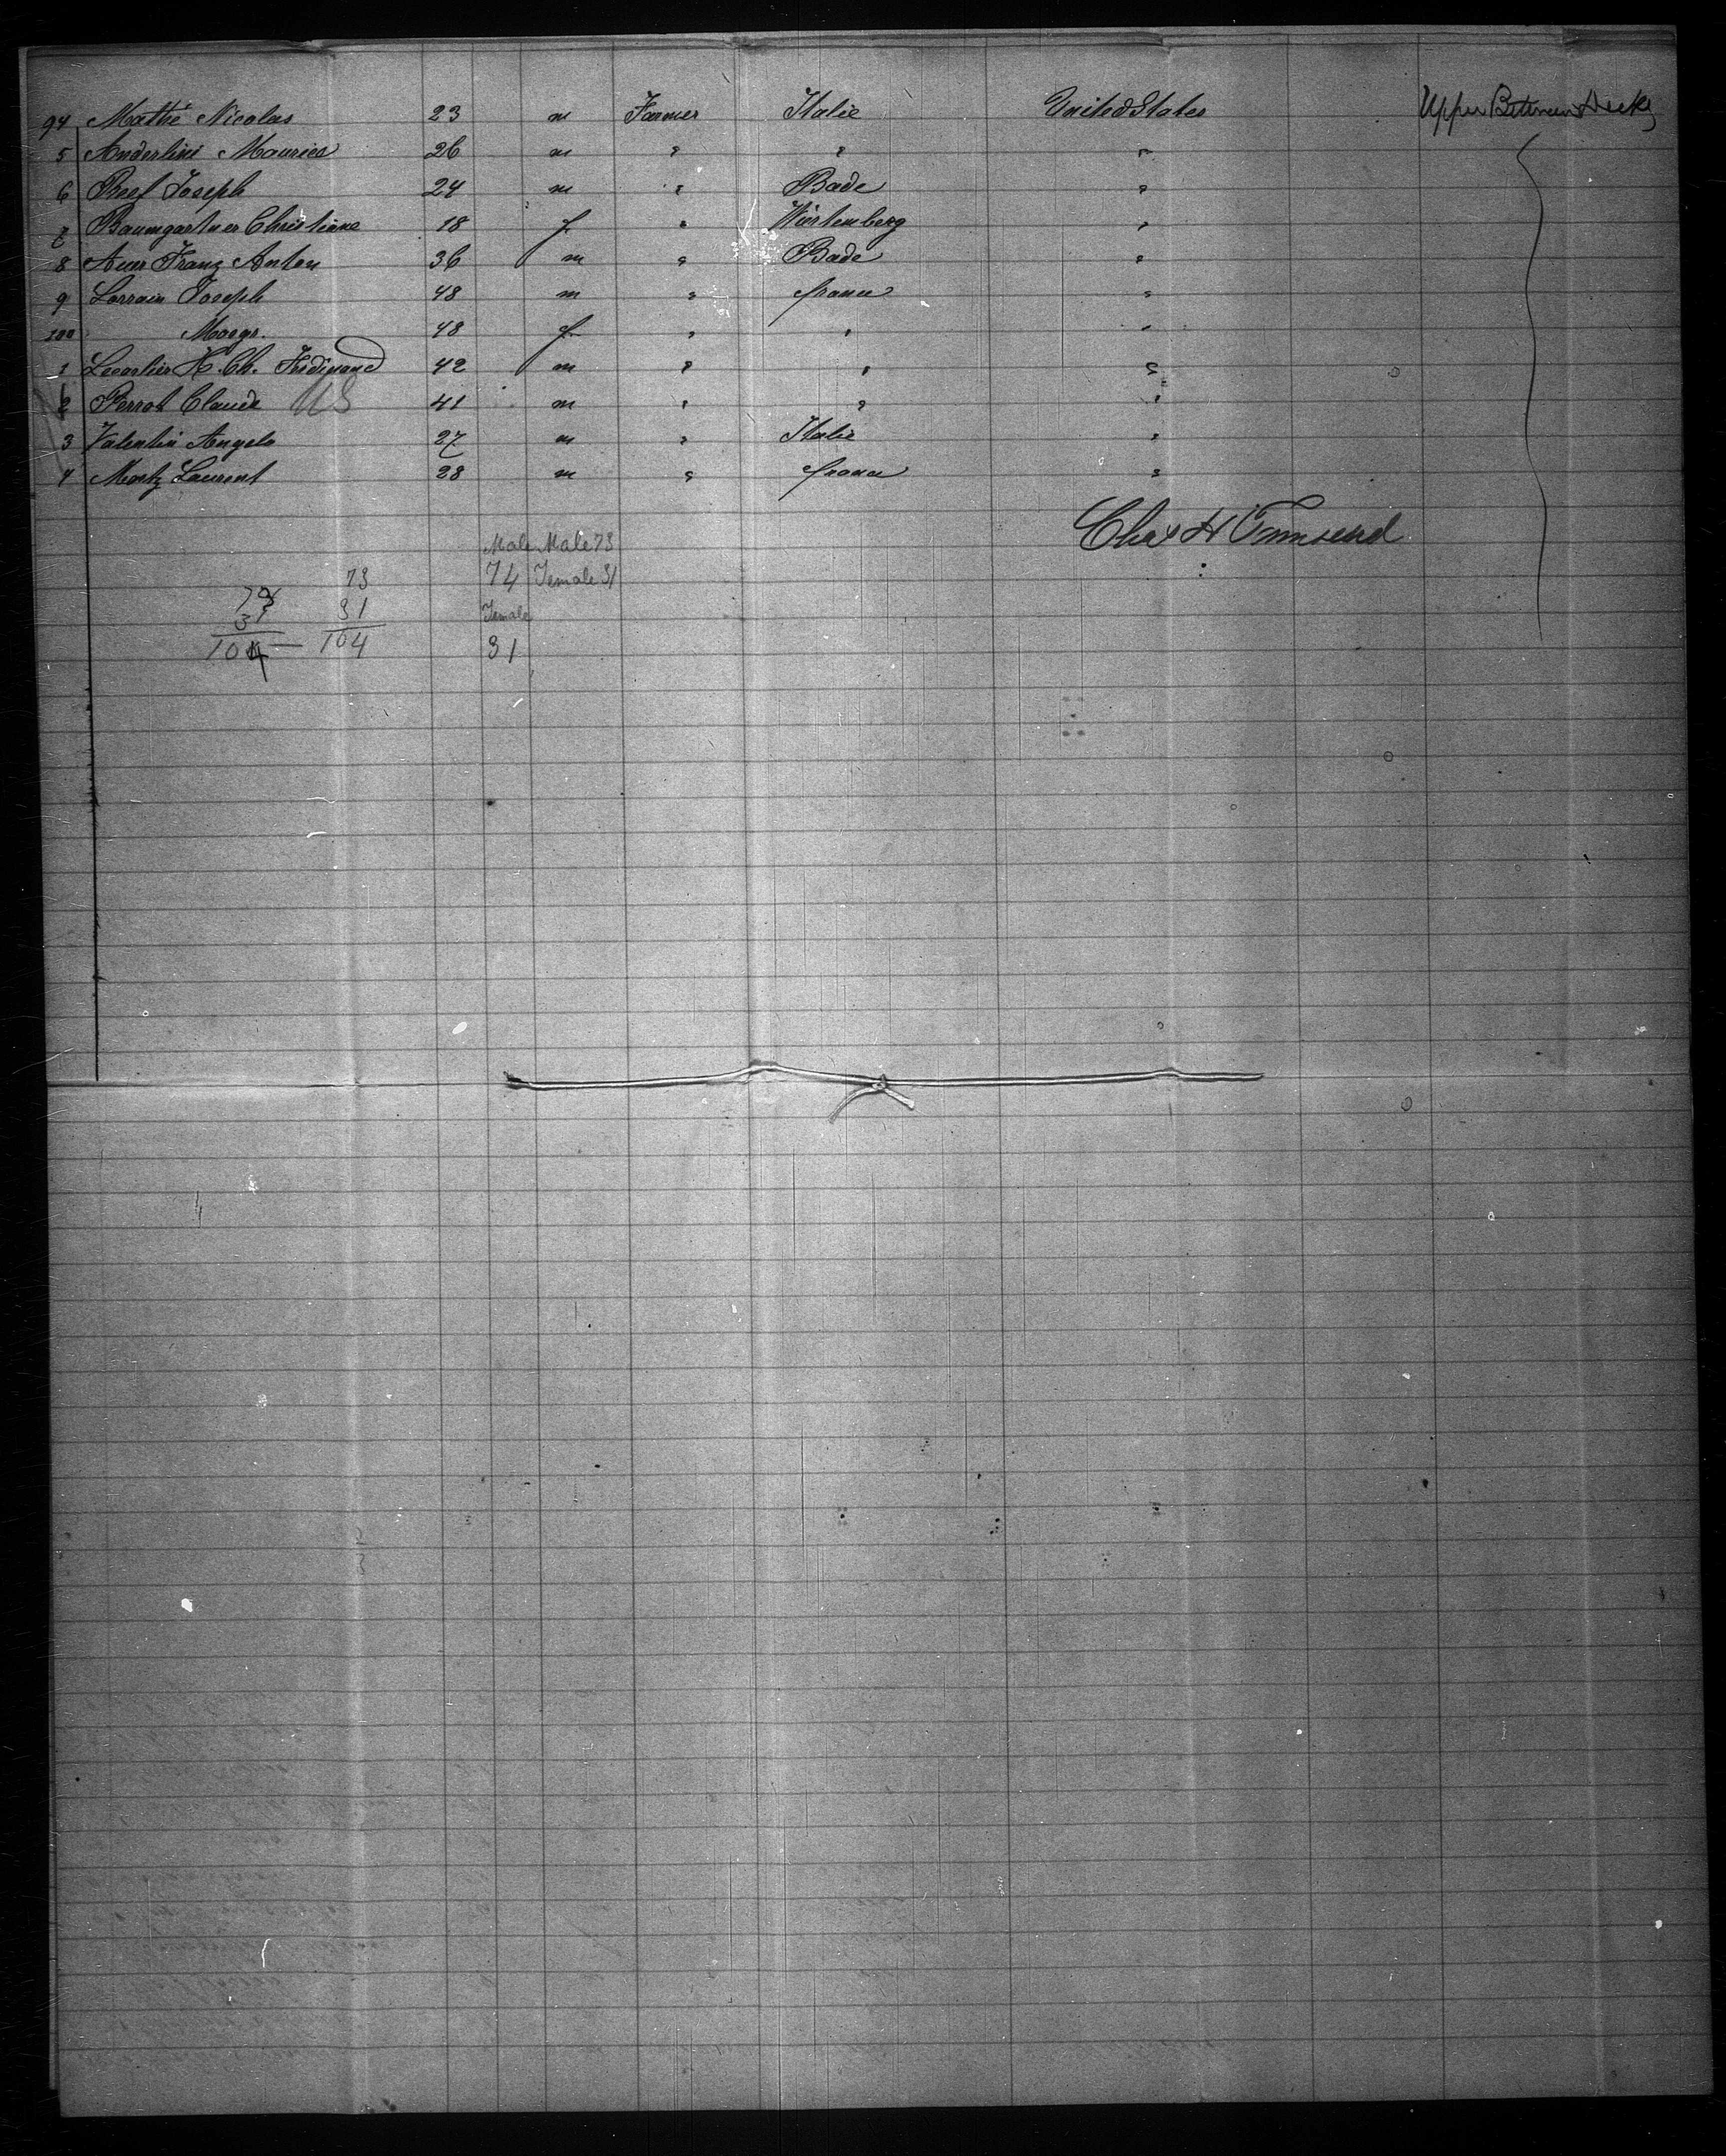 94 Mathé Nicolas 23 m Farmer Italie United States Upper Between Decks
5 Anderlini Maurice 26 m " " "
6 Joseph 24 m " Bade "
7 Baumgartner Christiane 18 f. " Würtemberg "
8 Auer Franz Anton 36 m " Bade "
9 Lorrain Joseph 48 m " france "
100 Margr. 48 f. " " "
1 Lecarlier H. Ch. Ferdinand 42 m " " "
2 Perrot Claude US 41 m " " "
3 Valentin Angelo 27 m " Italie "
4 Martz Laurent 28 m " france "
Chas H Townsend
Male Male 73
74 Female 31
73 73
31 31
Female
104 — 104
31